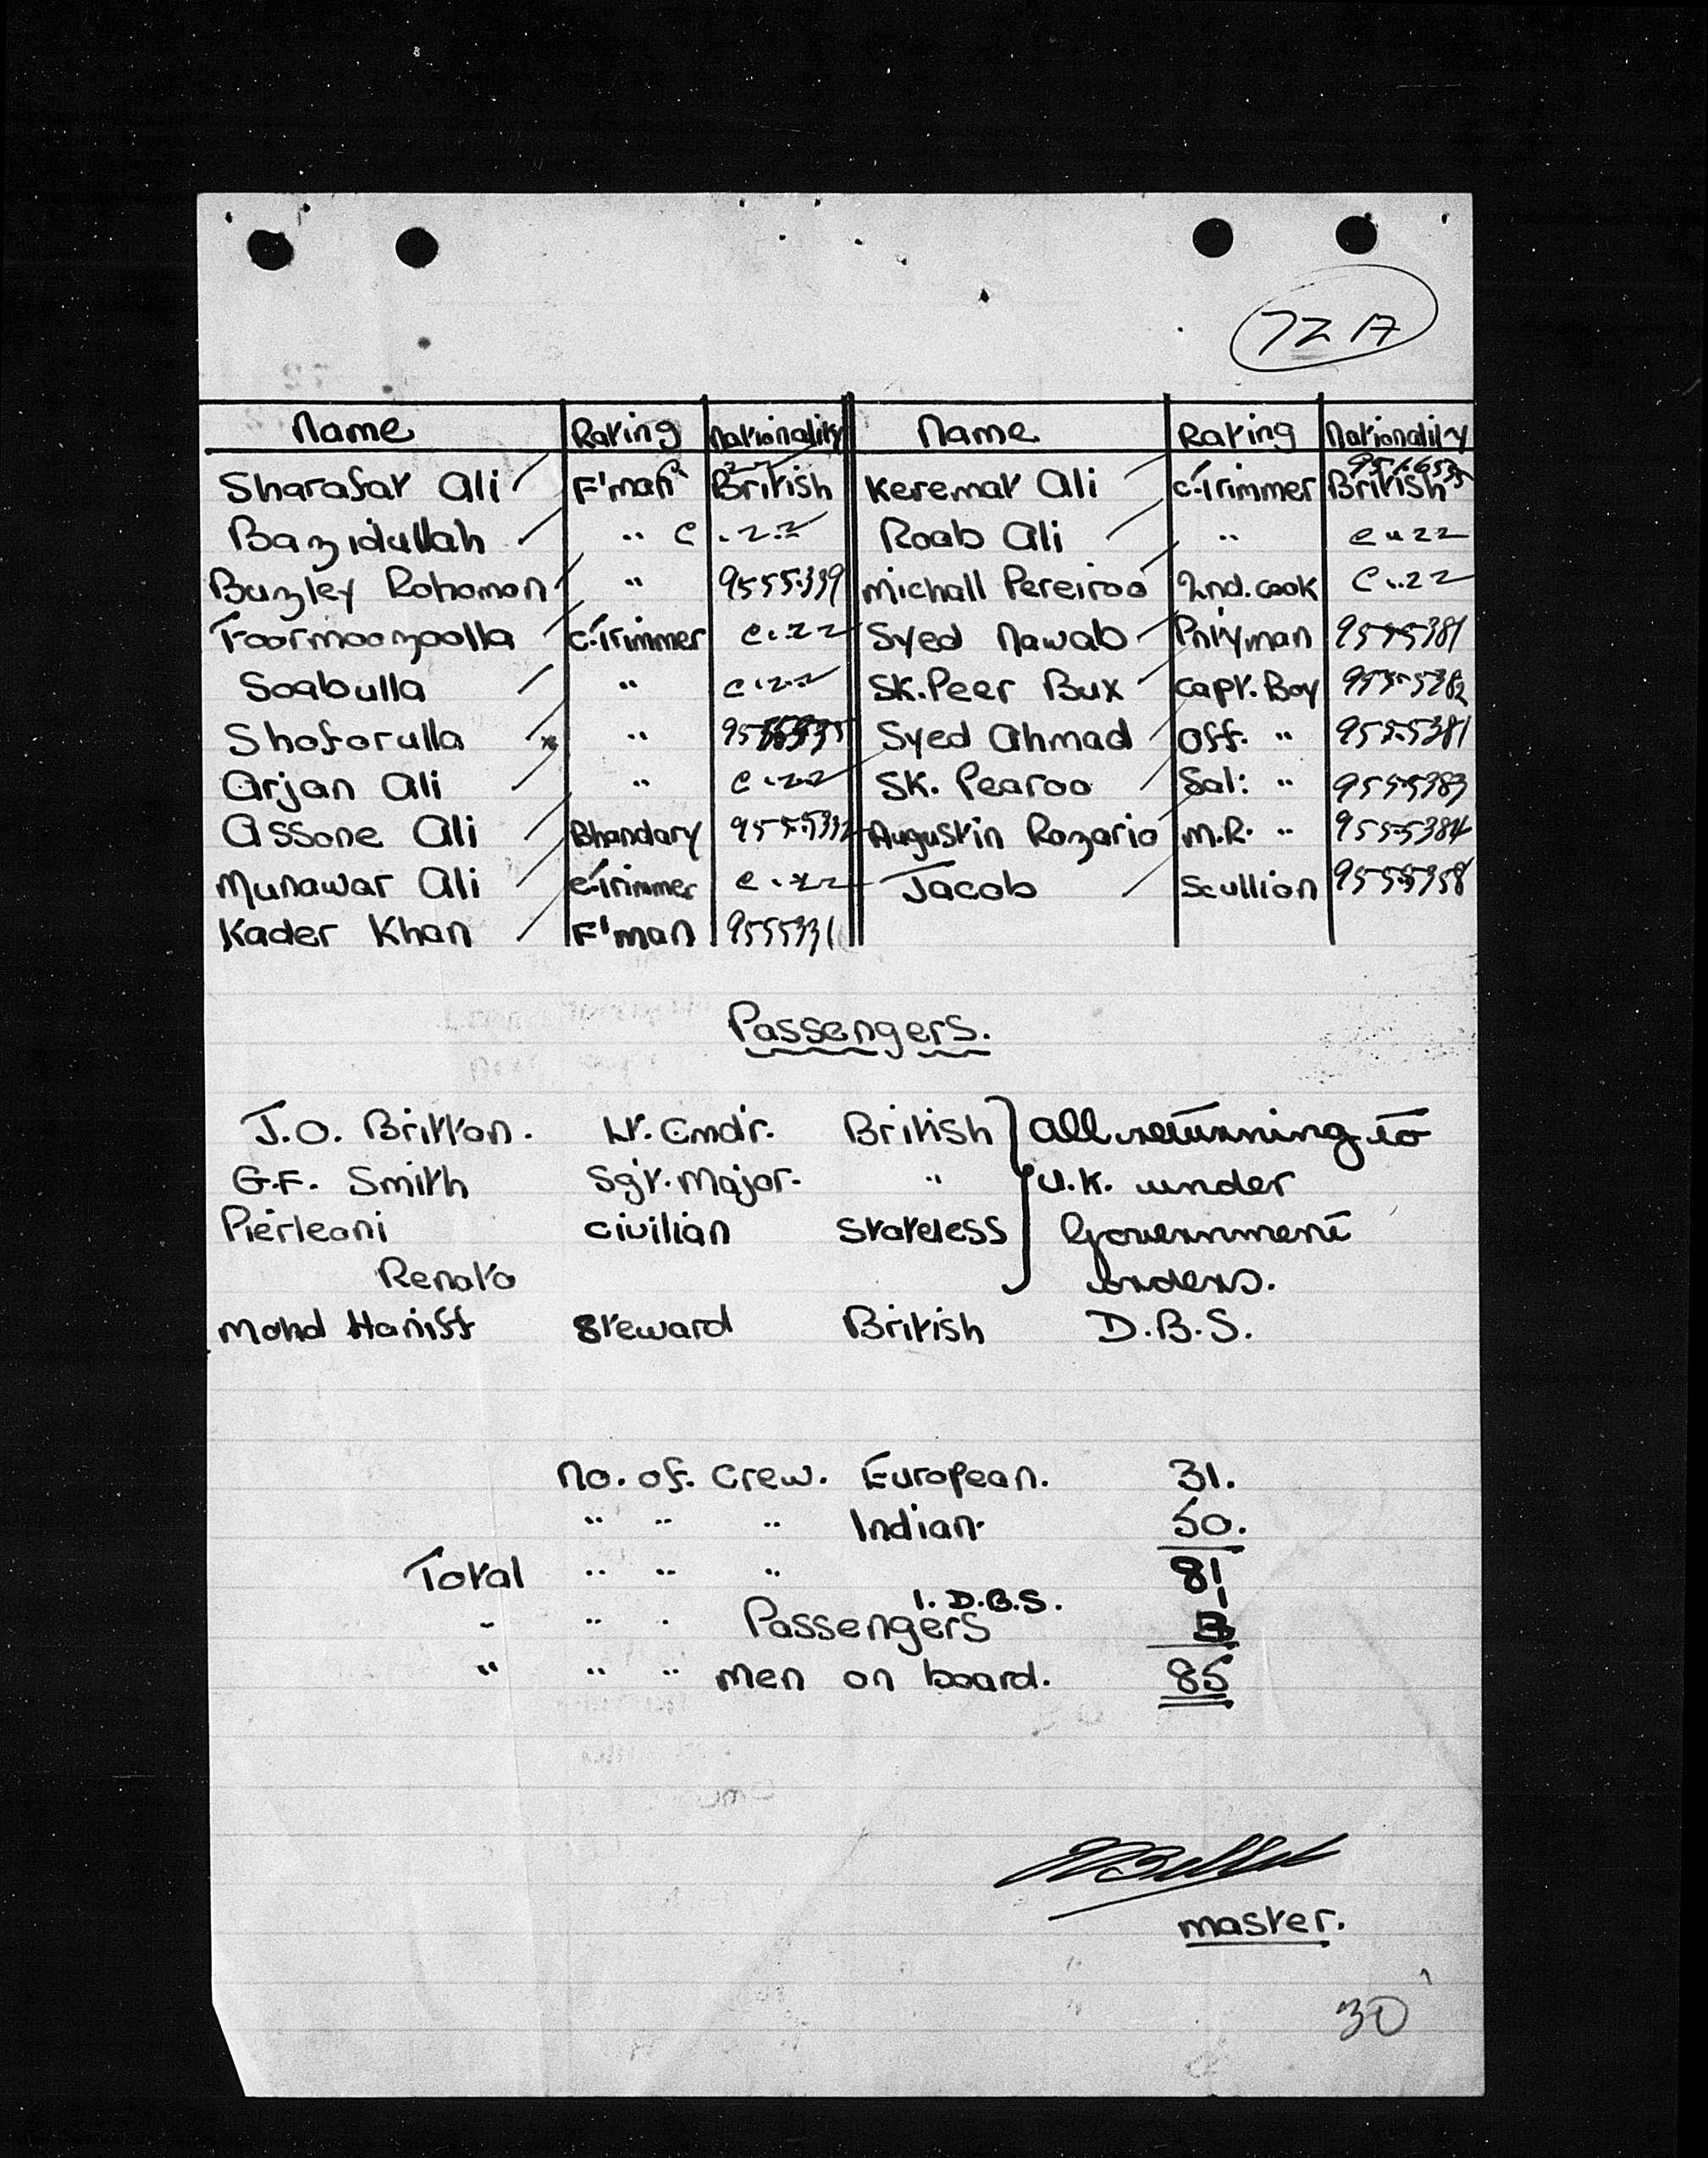 72 A
Name Rating Nationality Name Rating Nationality
Sharafat Ali F'man British Keremat Ali C. Trimmer British
Bazidullah " C Roab Ali "
Buzley Rohomon " 9555339 Michall Pereiroo 2nd. Cook
Foormoozoolla C. Trimmer Syed Nawab P'ntryman 9555381
Soabulla " Sk. Peer Bux Capt. Boy 9555382
Shoforulla " Syed Ahmad Off. " 9555381
Arjan Ali " Sk. Pearoo Sal: " 9555383
Assone Ali Bhandary 9555332 Augustin Rozario M.R. " 9555384
Munawar Ali C. Trimmer Jacob Scullion 9555358
Kader Khan F'man 9555331
Passengers.
J.O. Britton. Lt. Cmdr. British All returning to
G.F. Smith Sgt. Major. " U.K. under
Pierleoni Civilian Stateless Government
Renato orders.
Mohd Haniff Steward British D.B.S.
No. of. Crew. European. 31.
" " " Indian. 50.
Total " " " 81
1. D.B.S. 1
" " " Passengers 3
" " " Men on board. 85
Master.
30